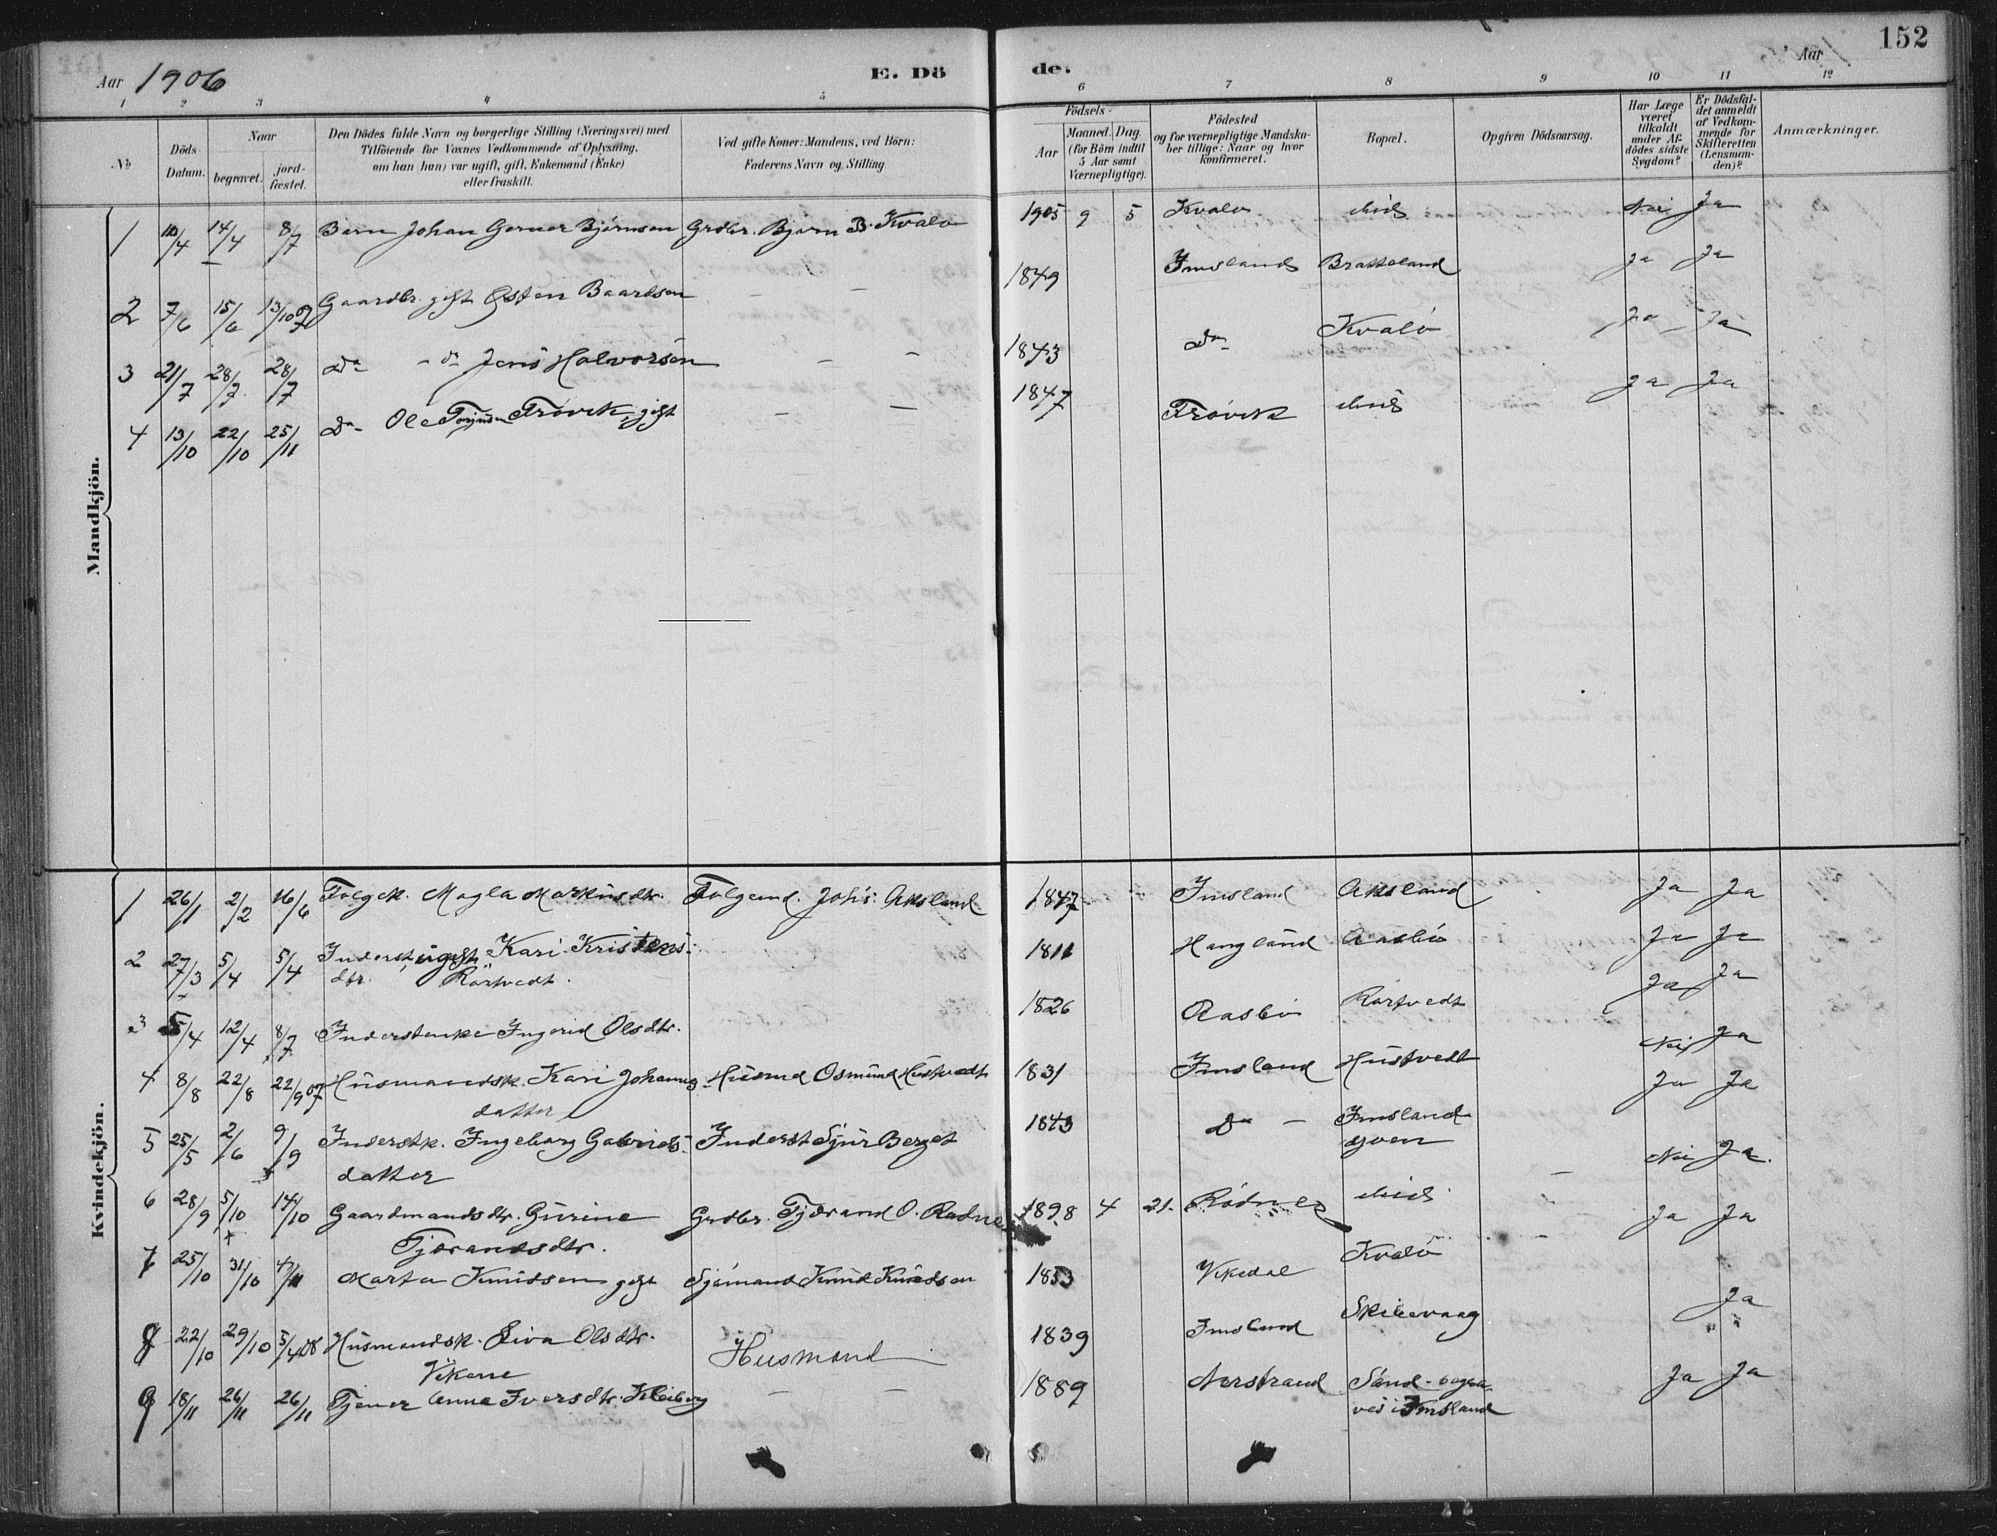 152
Aar 1906
E. Döde.
Aar
1 2 3 4 5 6 7 8 9 10 11 12
No
Döds Datum.
Naar
begravet.
jordfæstet.
Den Dödes fulde Navn og borgerlige Stilling (Næringsvei) med
Tilföiende for Voxnes Vedkommende af Oplysning,
om han (hun) var ugift, gift, Enkemand (Enke)
eller fraskilt.
Ved gifte Koner: Mandens, ved Börn:
Faderens Navn og Stilling.
Födsels-
Aar
Maaned. Dag.
(for Börn indtil
5 Aar samt
Værnepligtige).
Födested
og for værnepligtige Mandskaber tillige: Naar og hvor
konfirmeret.
Bopæl.
Opgiven Dödsaarsag.
Har Læge
været
tilkaldt
under Afdödes sidste
Sygdom?
Er Dödsfaldet anmeldt
af Vedkommende for
Skifteretten
(Lensmanden)?
Anmærkninger.
Mandkjön.
1 10/4 14/4 8/7 Barn Johan Gerner Bjørnsen Grdbr. Bjørn B. Kvalø 1905 9 5 Kvalø ibid Nei Ja
2 7/6 15/6 13/10 07 Gaardbr. gift Østen Baardsen – – 1849 Imsland Bratteland Ja Ja
3 21/7 28/7 28/7 Do - do Jens Halvorsen – – 1843 Do Kvalø Ja Ja
4 13/10 22/10 25/11 Do Ole Trøvik, gift – – 1847 Trøvik ibid Ja Ja
Kvindekjön.
1 26/1 2/2 16/6 Folgek. Magla Markusdtr. Folgemd. Johs: Aksland 1847 Imsland Aksland Ja Ja
2 27/3 5/4 5/4 Inderst, ugift Kari Kristens-
dtr. Rørtvedt. 1811 Hangland Aasbø Ja Ja
3 5/4 12/4 8/7 Inderstenke Ingerid Olsdtr. 1826 Aasbø Rørtvedt Ja Ja
4 8/8 22/8 22/9 07 Husmandsk. Kari Johannes-
datter Husmd Osmund Hustvedt 1831 Imsland Hustvedt Nei Ja
5 25/5 2/6 9/9 Inderstk. Ingeborg Gabriels-
datter Inderst Sjur Berget 1843 Do – Imsland
sjøen Ja Ja
6 28/9 5/10 14/10 Gaardmandsdtr. Gurine
Tjærandsdtr. Grdbr. Tjærand O. Rødne 1898 4 21 Rødne ibid. – Nei Ja.
7 25/10 31/10 4/11 Marta Knudsen gift Sjømand Knud Knudsen 1853 Vikedal Kvalø – Ja Ja
8 22/10 29/10 5/4 08 Husmandsk. Siva Olsdtr.
Vikene Husmand 1839 Imsland Skibevaag Ja
9 18/11 26/11 26/11 Tjener Anna Iversdtr. Kleiberg – – 1889 Nerstrand Sand - begra-
ves i Imsland Ja Ja